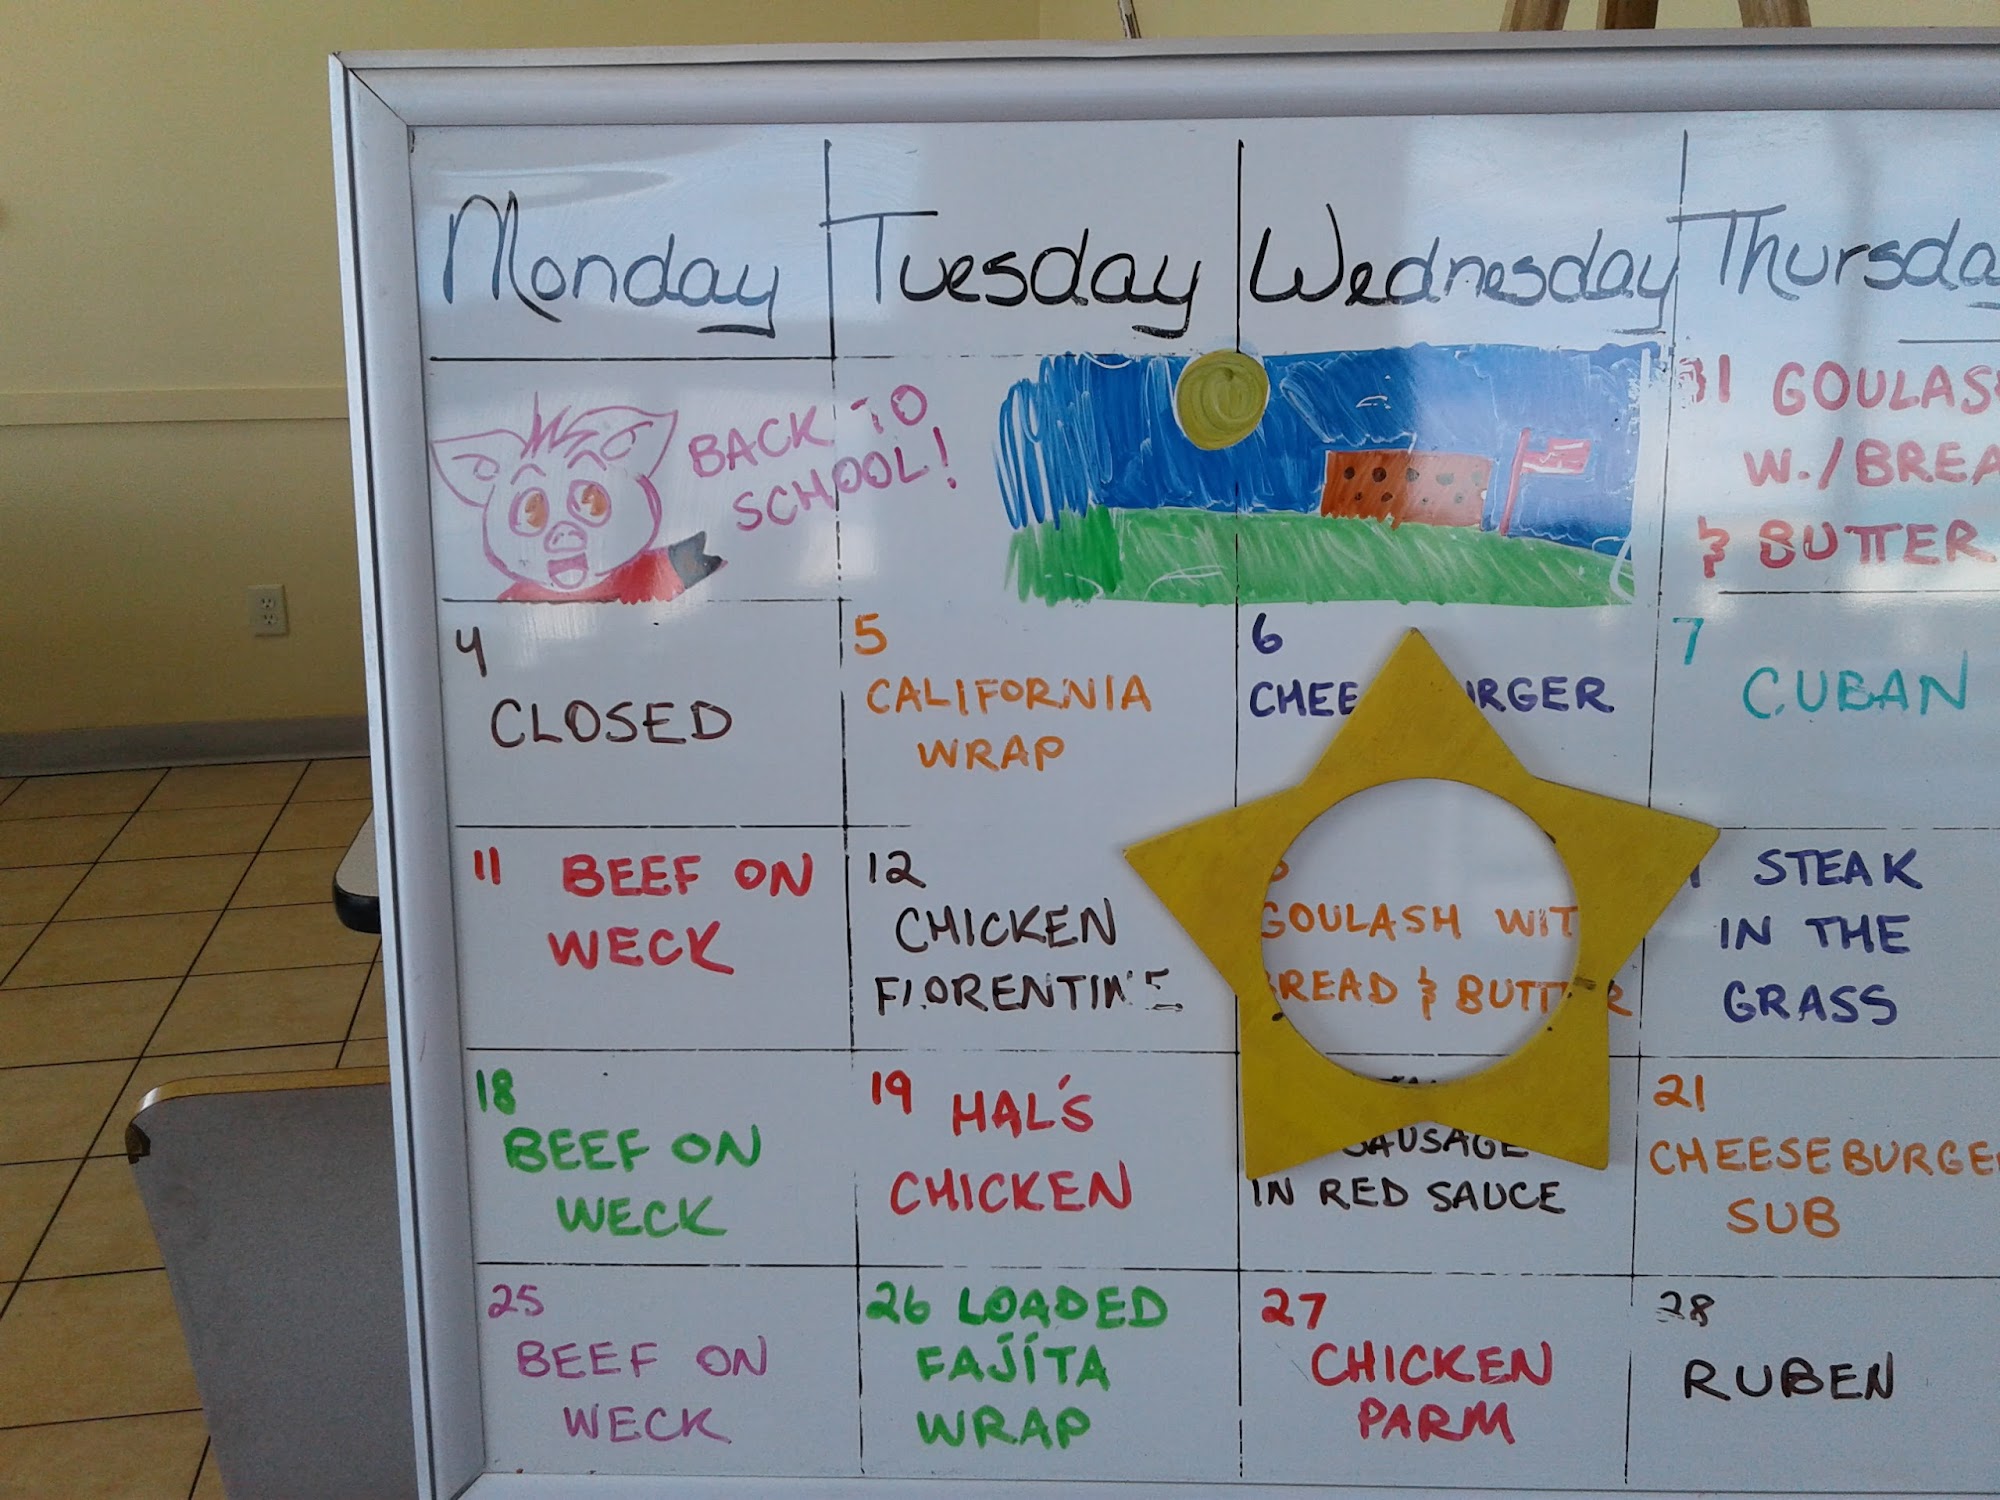 Monday Tuesday Wednesday
BACK TO
SCHOOL!
31 GOULASH
W./BREA
& BUTTER
4
CLOSED
5
CALIFORNIA
WRAP
6
7
CUBAN
11 BEEF ON
WECK
12
CHICKEN
FLORENTINE
GOULASH WIT
BREAD & BUTTER
STEAK
IN THE
GRASS
18
BEEF ON
WECK
19 HAL'S
CHICKEN
SAUSAGE
IN RED SAUCE
21
CHEESEBURGE
SUB
25
BEEF ON
WECK
26 LOADED
FAJITA
WRAP
27
CHICKEN
PARM
28
RUBEN